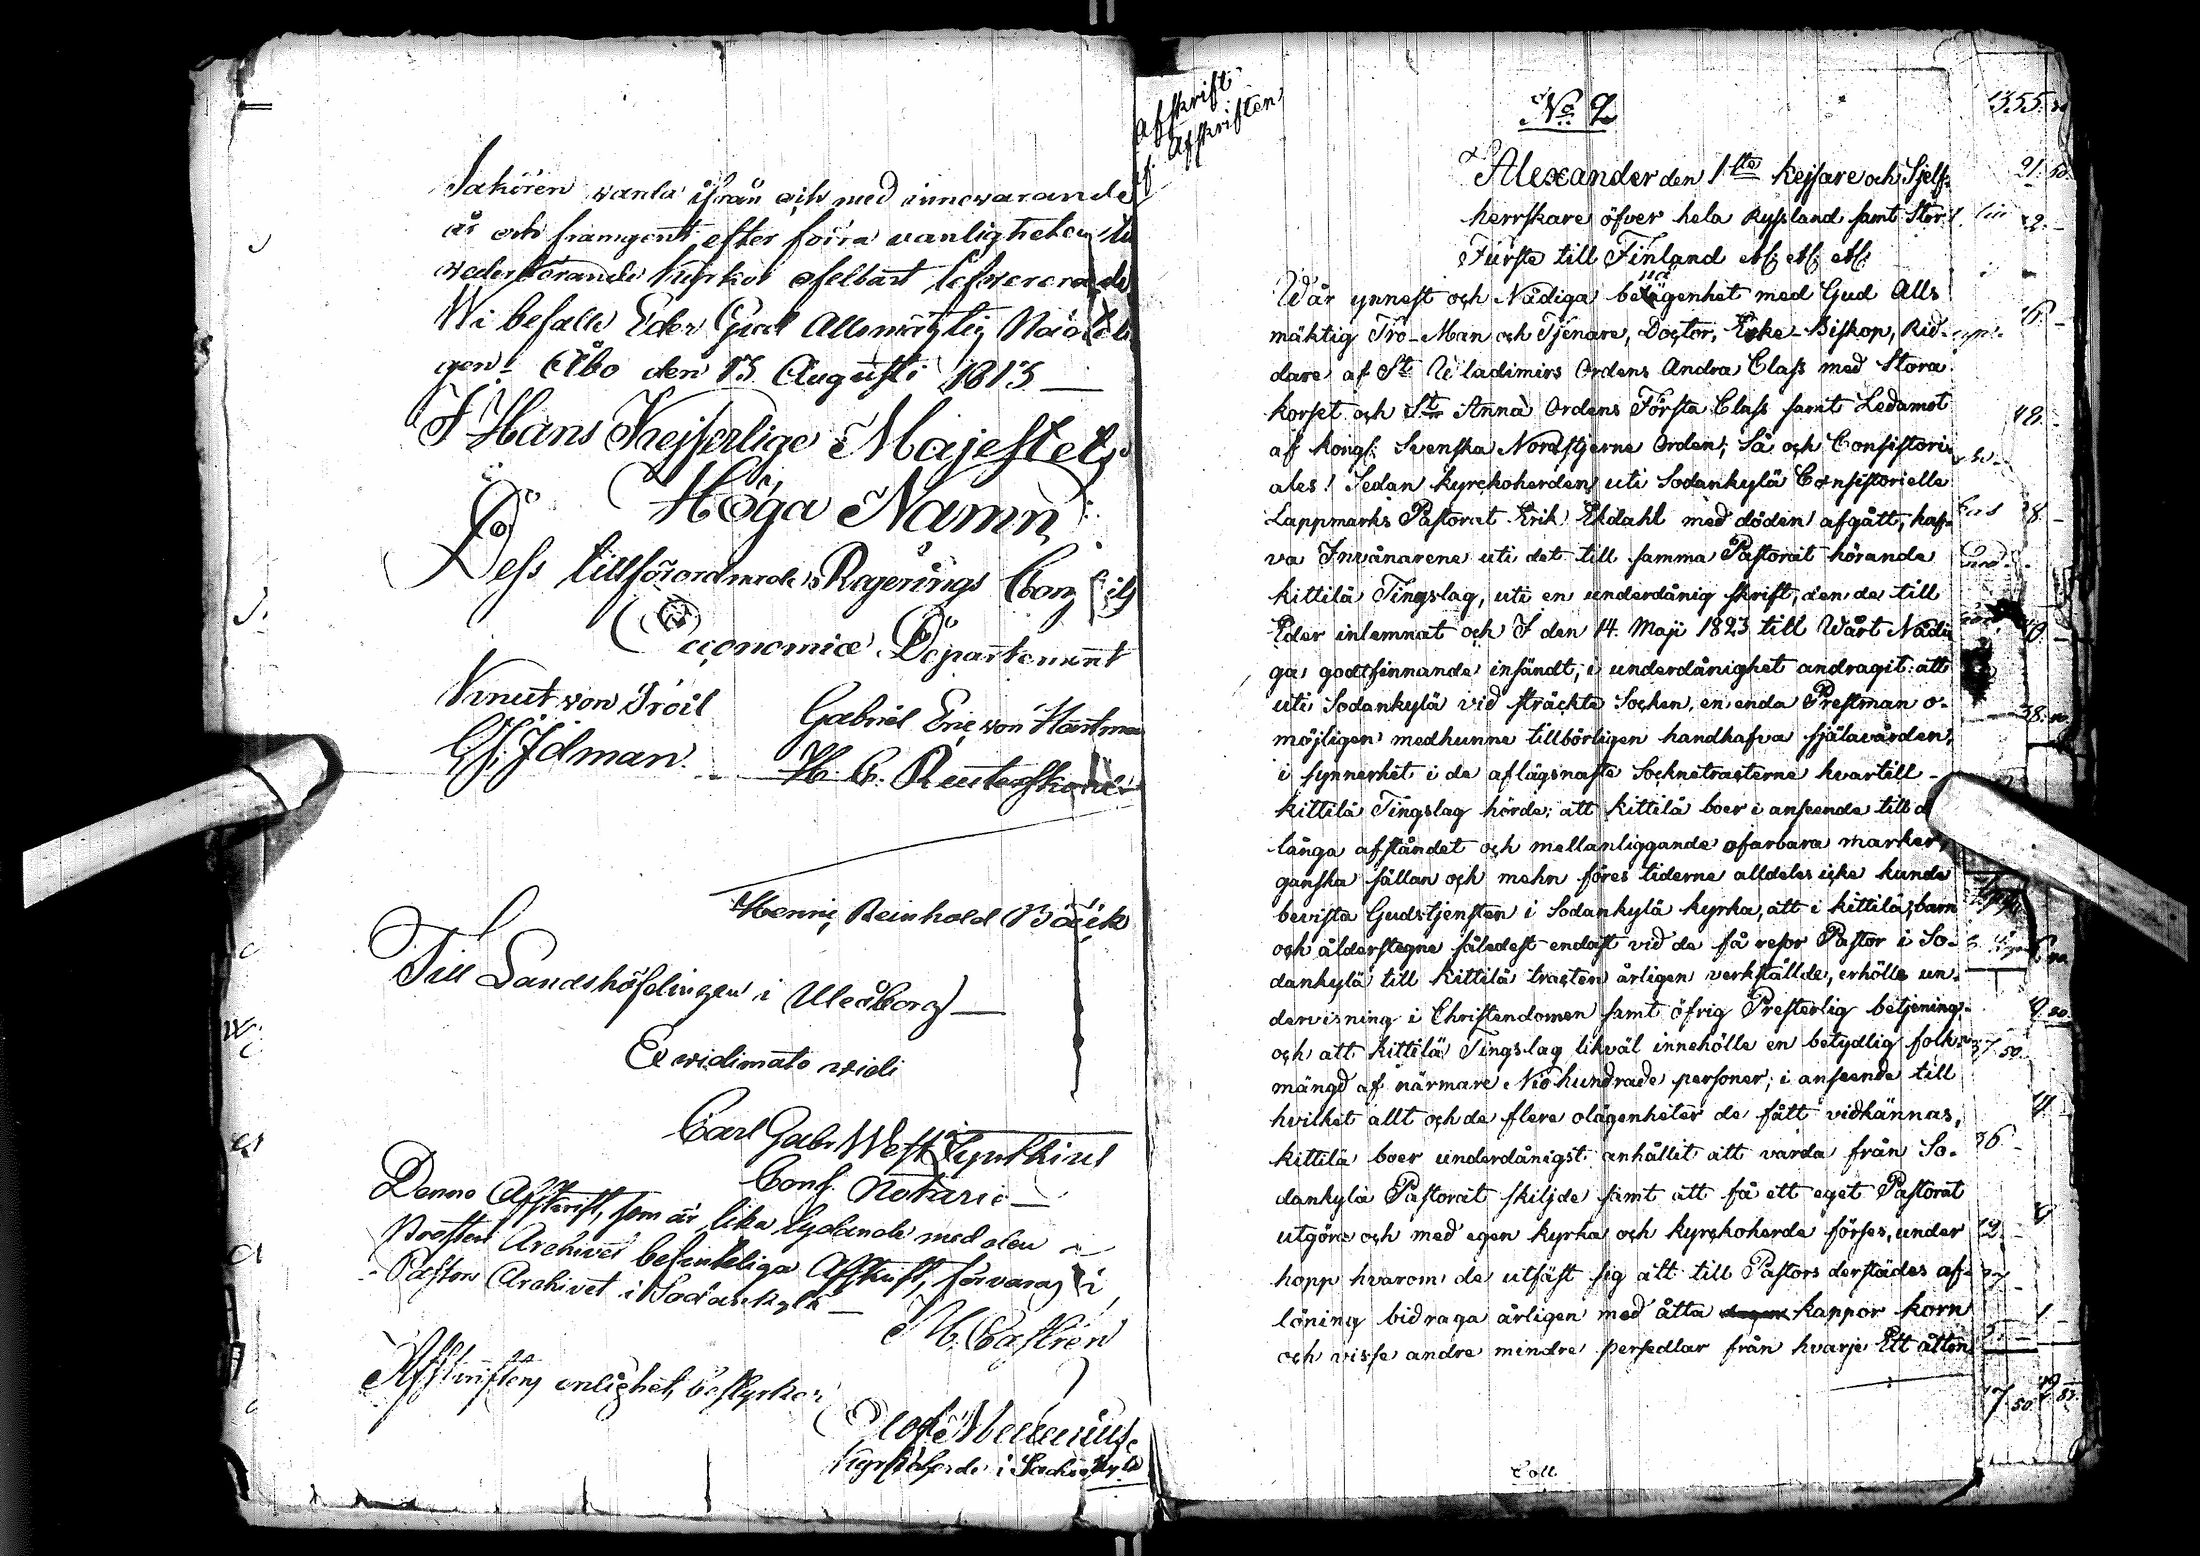 Sakören wanla ifrån och med innewarande
år och framgent efter förra vanligheten
wederbörande Kyrkor ofelbart lefwereras
Wi befalle Eder Gud Allsmägtig Nåde
gen! Åbo den 13 Augusti 1813 —
I Hans Kejserlige Majestets
Höga Namn,
Dess tillförordnade Regerings Con
Oeconomiæ Departement
Knut von Troil
Gabriel Eric von Hartman
C. J. Idman.
Henric Reinhold Bäck
Till Landshöfdingen i Uleåborg —
Ex vidimato vidi
Carl Gabr West
Cons. Notarie —
Denna Afskrift, som är lika lydande med den
Prosteri Archivet befinteliga Afskrift, förvaras i
Pastors Archivet i Sodankylä —
M. Castrén
Afskriftens enlighet bestyrker
Kyrkoherde i Sodankylä
Afskrift
af Afskriften
No 2
Alexander den 1ste Kejsare och Sjelf-
herrskare öfver hela Ryssland samt Stor
Furste till Finland etc; etc; etc;
Wår ynnest och Nådiga benägenhet med Gud Alls
mäktig Tro-Man och Tjenare, Doctor, Erke-Biskop, Rid-
dare af St Wladimirs Ordens Andra Class med Stora
korset och Ste Annæ Ordens Första Class samt Ledamot
af Kongl. Svenska Nordstjerne Orden; Så och Consistori-
ales! Sedan Kyrckoherden uti Sodankylä Consistorielle
Lappmarks Pastorat Erik Ekdahl med döden afgått, haf-
va Invånarene uti det till samma Pastorat hörande
Kittilä Tingslag, uti en underdånig skrift, den de till
Eder inlemnat och I den 14. Maji 1823 till Wårt Nådi
ga godtfinnande insändt, i underdånighet andragit: att
uti Sodankylä vid sträckte Socken, en enda Prestman o-
möjligen medhunne tillbörligen handhafva själavården,
i synnerhet i de aflägsnaste Socknetracterne hvartill -
Kittilä Tingslag hörde; att Kittilä boer i anseende till d
långa afståndet och mellanliggande ofarbara marker,
ganska sällan och mehn föres tiderne alldeles icke kunde
bevista Gudstjensten i Sodankylä Kyrka, att i Kittilä, barn
och ålderstegne således endast vid de få resor Pastor i So-
dankylä till Kittilä tracten årligen verkställde, erhölle un-
dervisning i Christendomen samt öfrig Presterlig betjening,
och att Kittilä Tingslag likväl innehölle en betydlig folk-
mängd af närmare Niohundrade personer; i anseende till
hvilket allt och de flere olägenheter de fått vidkännas,
Kittilä boer underdånigst anhållit att varda från So-
dankylä Pastorat skiljde samt att få ett eget Pastorat
utgöra och med egen Kyrka och Kyrckoherde förses, under
hopp hvarom de utfäst sig att till Pastors derstädes af-
löning bidraga årligen med åtta kappor korn
och visse andre mindre persedlar från hvarje Ett åtton
Coll.